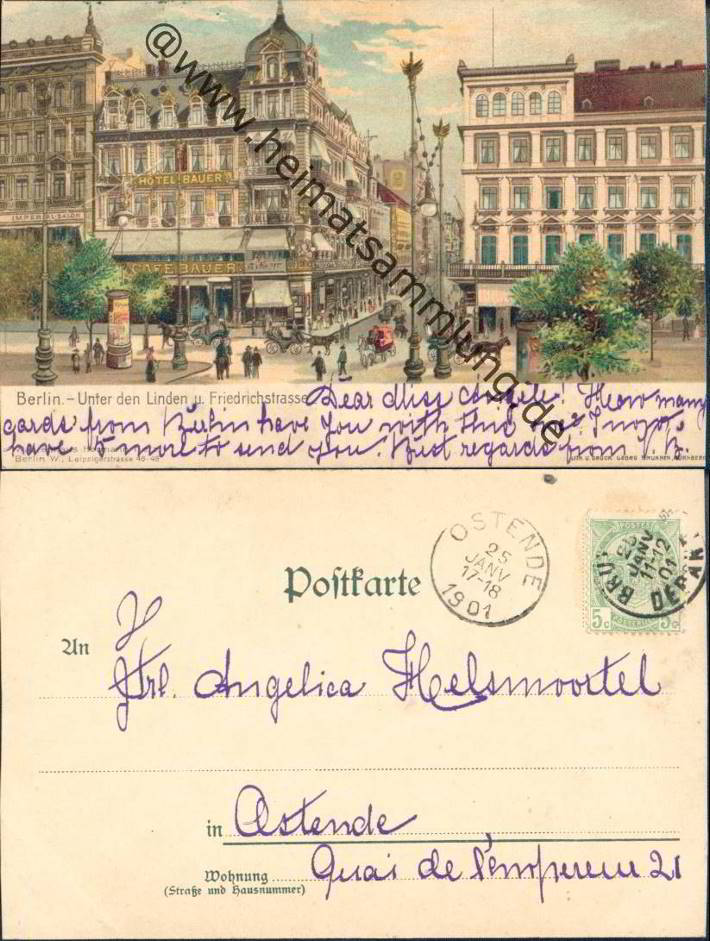 @www.heimatsammlung.de
HOTEL BAUER
IMPERIAL
CAFÉ BAUER
Berlin. – Unter den Linden u. Friedrichstrasse
Dear Miss! How many
cards from Berlin have you with this one? I now
have 5 more to send you. Best regards from
Berlin W., Leipzigerstrasse
OSTENDE
25
JANV
17-18
1901
BRUX
25
JANV
11-12
01
DEPART
POSTES
5c 5c
Postkarte
An
Frl. Angelica Helsmoortel
in Ostende
Wohnung Quai de l'empereur 21
(Straße und Hausnummer)